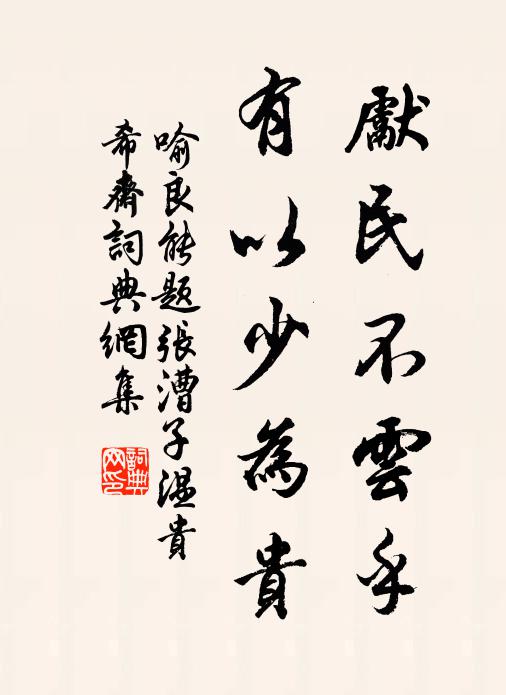 獻民不雲乎
有以少為貴
喻良能題張漕子溫貴
希齋詞典網集
詞典網印